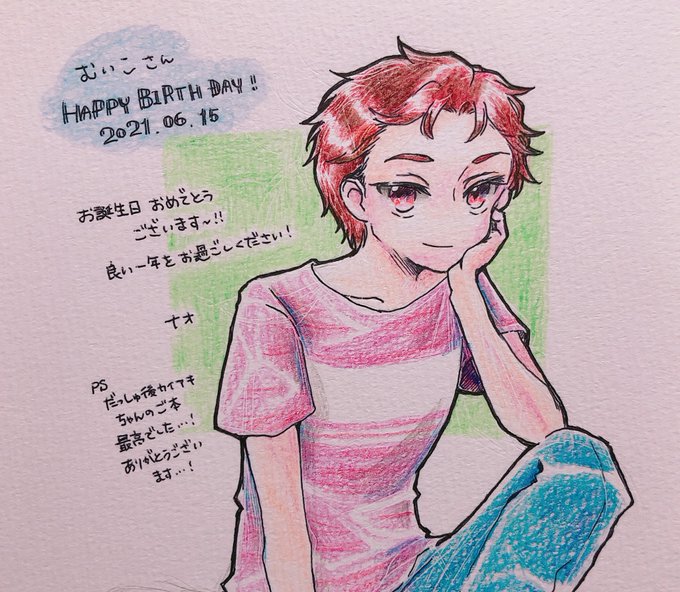 むいこさん
HAPPY BIRTH DAY!!
2021.06.15
お誕生日 おめでとう
ございます〜!!
良い一年をお過ごしください!
ナオ
PS
だっしゅ後カイアキ
ちゃんのご本
最高でした…!
ありがとうござい
ます…!